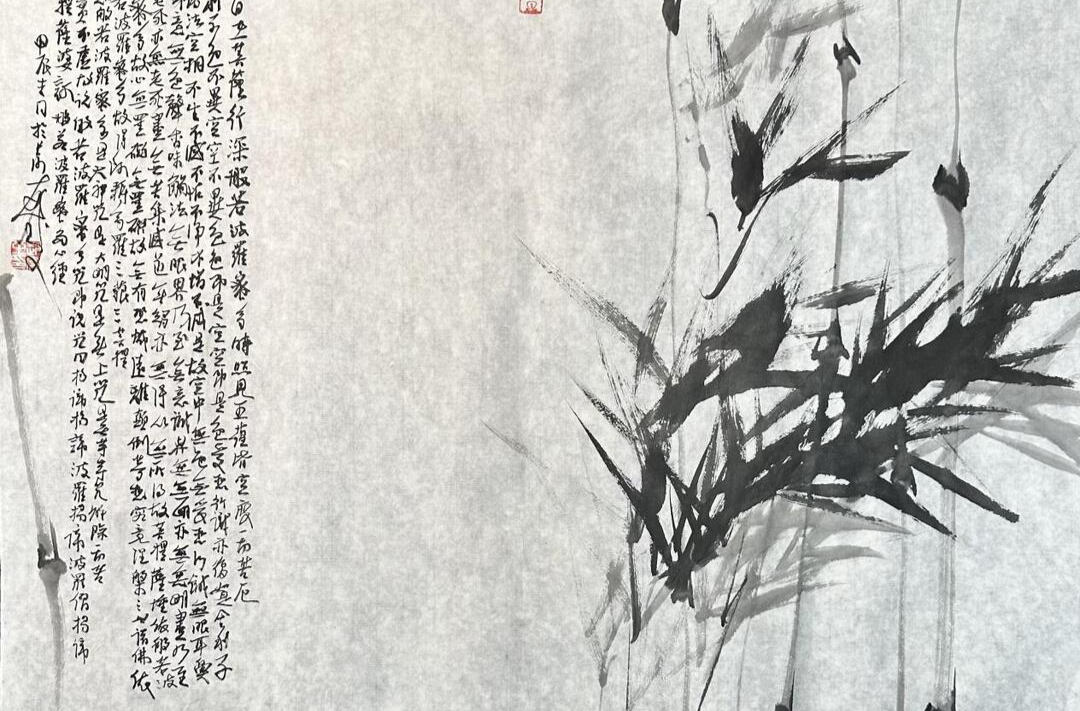 在菩薩行深般若波羅蜜多時照見五蘊皆空度一切苦厄
利子色不異空空不異色色即是空空即是色受想行識亦復如是舍利子
法空相不生不滅不垢不淨不增不減是故空中無色無受想行識無眼耳鼻
意無色聲香味觸法無眼界乃至無意識界無無明亦無無明盡乃至
老死亦無老死盡無苦集滅道無智亦無得以無所得故菩提薩埵依般若波
蜜多故心無罣礙無罣礙故無有恐怖遠離顛倒夢想究竟涅槃三世諸佛依
若波羅蜜多故得阿耨多羅三藐三菩提
般若波羅蜜多是大神咒是大明咒是無上咒是無等等咒能除一切苦
實不虛故說般若波羅蜜多咒即說咒曰揭諦揭諦波羅揭諦波羅僧揭諦
提薩婆訶般若波羅蜜多心經
甲辰月於